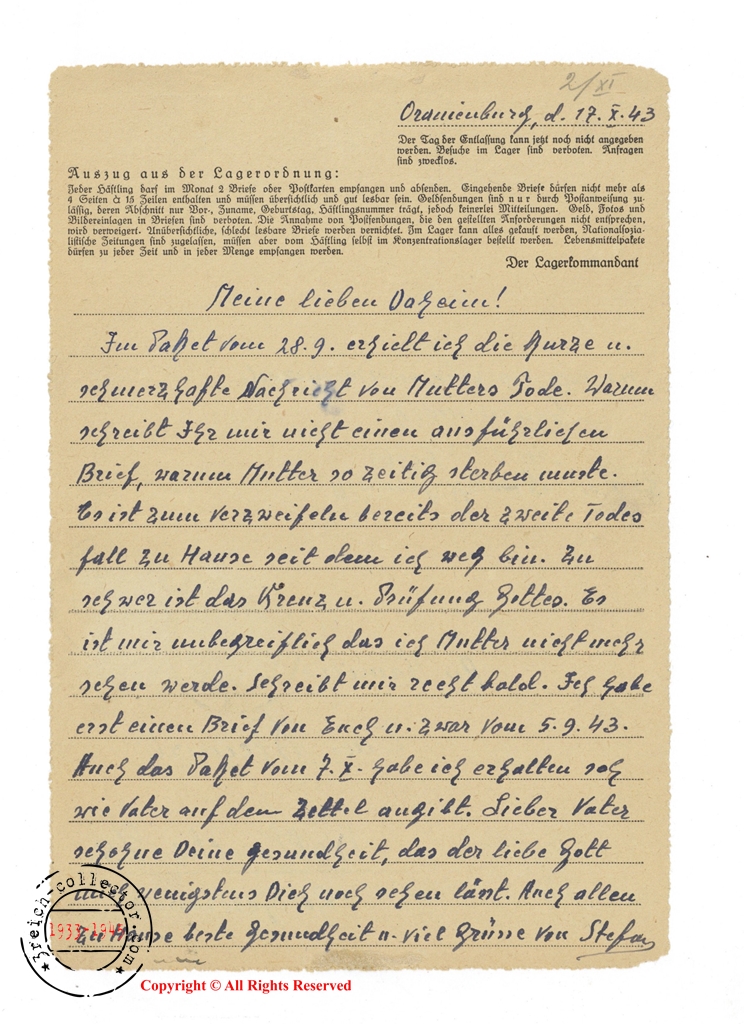 2/XI
Oranienburg, d. 17. X. 43
Der Tag der Entlassung kann jetzt noch nicht angegeben
werden. Besuche im Lager sind verboten. Anfragen
sind zwecklos.
Auszug aus der Lagerordnung:
Jeder Häftling darf im Monat 2 Briefe oder Postkarten empfangen und absenden. Eingehende Briefe dürfen nicht mehr als
4 Seiten à 15 Zeilen enthalten und müssen übersichtlich und gut lesbar sein. Geldsendungen sind nur durch Postanweisung zu-
lässig, deren Abschnitt nur Vor-, Zuname, Geburtstag, Häftlingsnummer trägt, jedoch keinerlei Mitteilungen. Geld, Fotos und
Bildereinlagen in Briefen sind verboten. Die Annahme von Postsendungen, die den gestellten Anforderungen nicht entsprechen,
wird verweigert. Unübersichtliche, schlecht lesbare Briefe werden vernichtet. Im Lager kann alles gekauft werden. Nationalsozia-
listische Zeitungen sind zugelassen, müssen aber vom Häftling selbst im Konzentrationslager bestellt werden. Lebensmittelpakete
dürfen zu jeder Zeit und in jeder Menge empfangen werden.
Der Lagerkommandant
Meine lieben Daheim!
Im Paket vom 28.9. erhielt ich die Kurze u.
schmerzhafte Nachricht von Mutters Tode. Warum
schreibt Ihr mir nicht einen ausführlichen
Brief, warum Mutter so zeitig sterben muste.
Es ist zum verzweifeln bereits der zweite Todes
fall zu Hause seit dem ich weg bin. Zu
schwer ist das Kreuz u. Prüfung Gottes. Es
ist mir unbegreiflich das ich Mutter nicht mehr
sehen werde. Schreibt mir recht bald. Ich habe
erst einen Brief von Euch u. zwar vom 5.9.43.
Auch das Paket vom 7. X. habe ich erhalten so
wie Vater auf dem Zettel angibt. Lieber Vater
schohne Deine gesundheit, das der liebe Gott
wenigstens Dich noch sehen lässt. Auch allen
zu Hause beste Gesundheit u. viel Grüsse von Stefan
3reich-collector.com
1933-1945
Copyright © All Rights Reserved